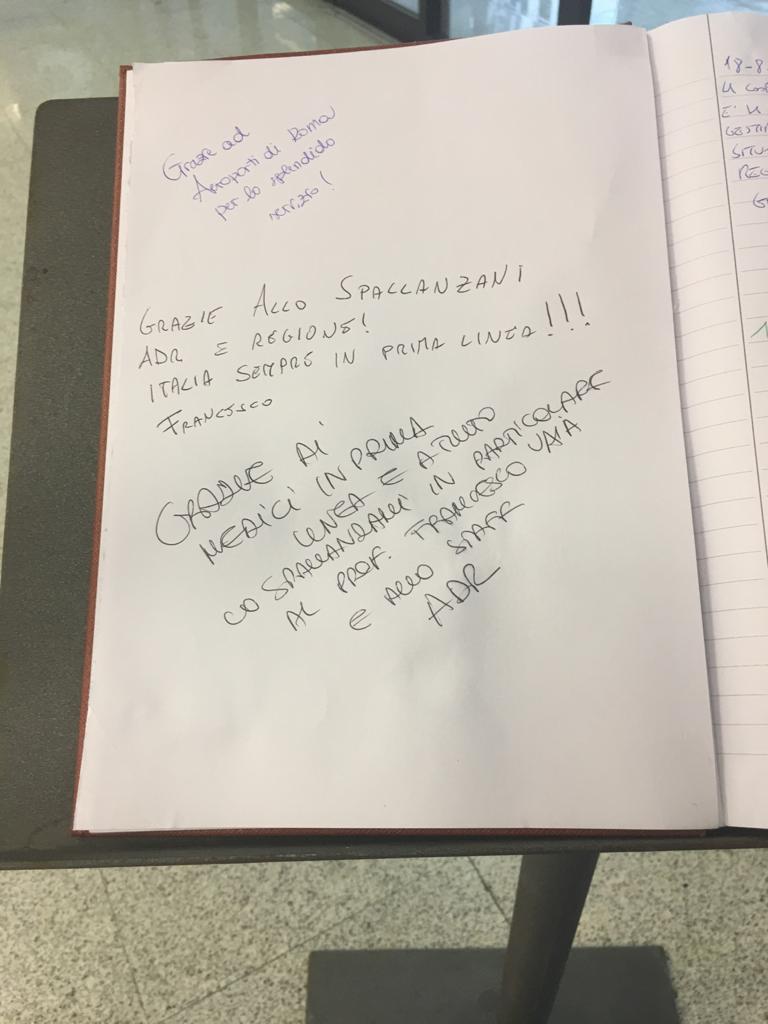 Grazie ad
Aeroporti di Roma
per lo splendido
servizio!
GRAZIE ALLO SPALLANZANI
ADR E REGIONE!
ITALIA SEMPRE IN PRIMA LINEA!!!
FRANCESCO
GRAZIE AI
MEDICI IN PRIMA
LINEA E A TUTTO
LO SPALLANZANI IN PARTICOLARE
AL PROF. FRANCESCO VAIA
E ALLO STAFF
ADR
18-8
E' LA